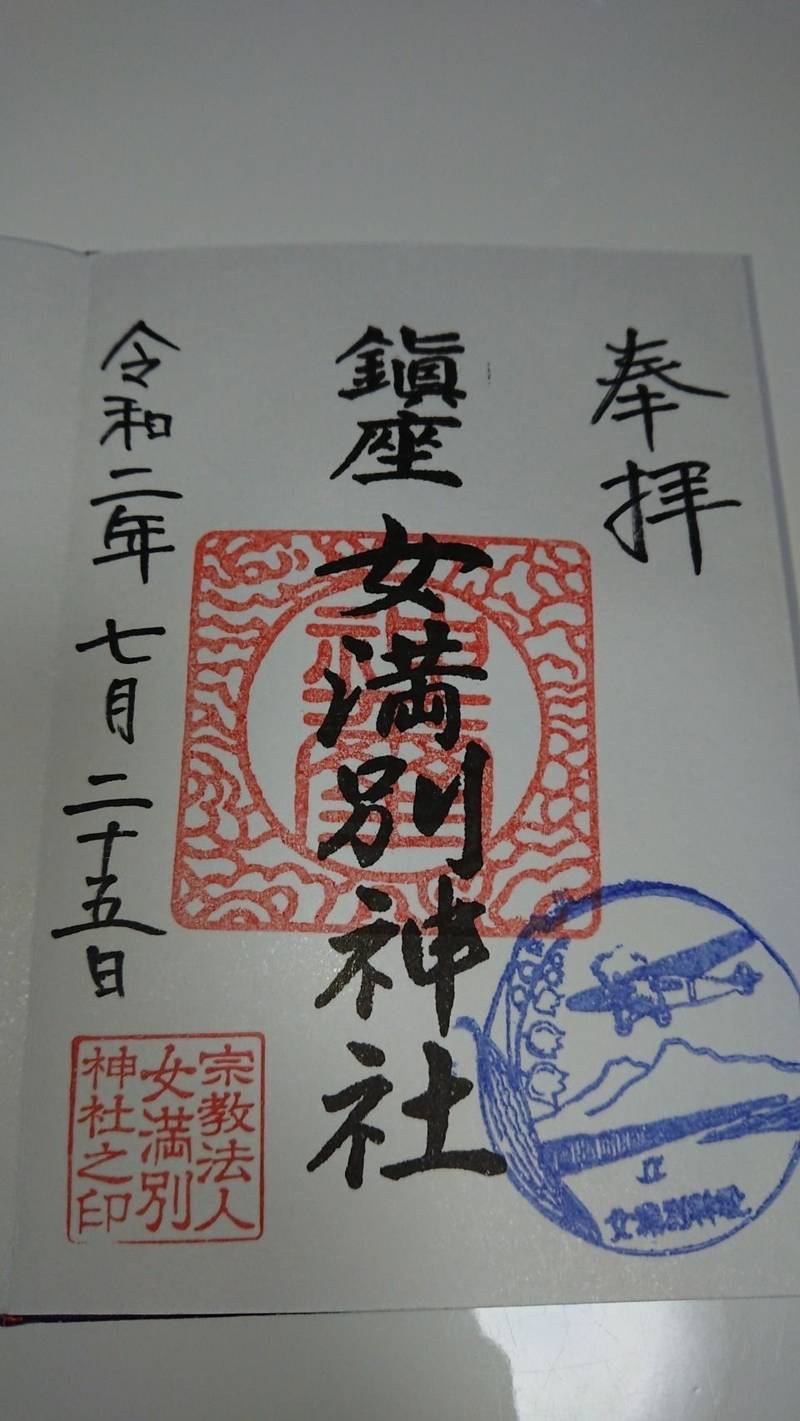 奉拝
鎮座 女満別神社
令和二年 七月 二十五日
宗教法人
女満別
神社之印
女満別神社